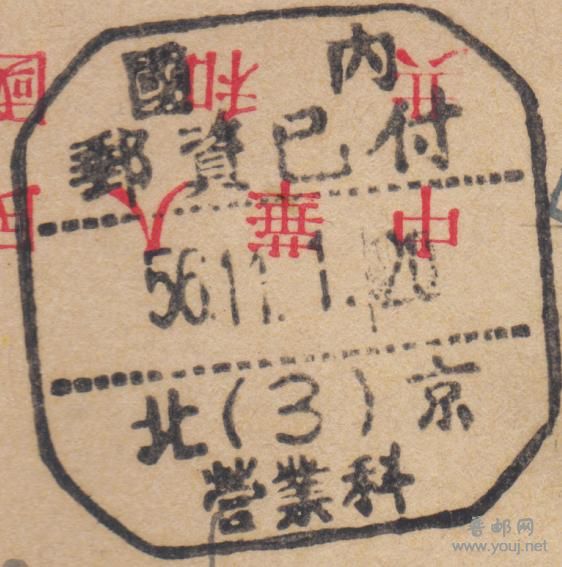 國 內
郵資已付
56.11.1.20
北(3)京
營業科
國 和 共
民 人 華 中
普邮网
www.youj.net